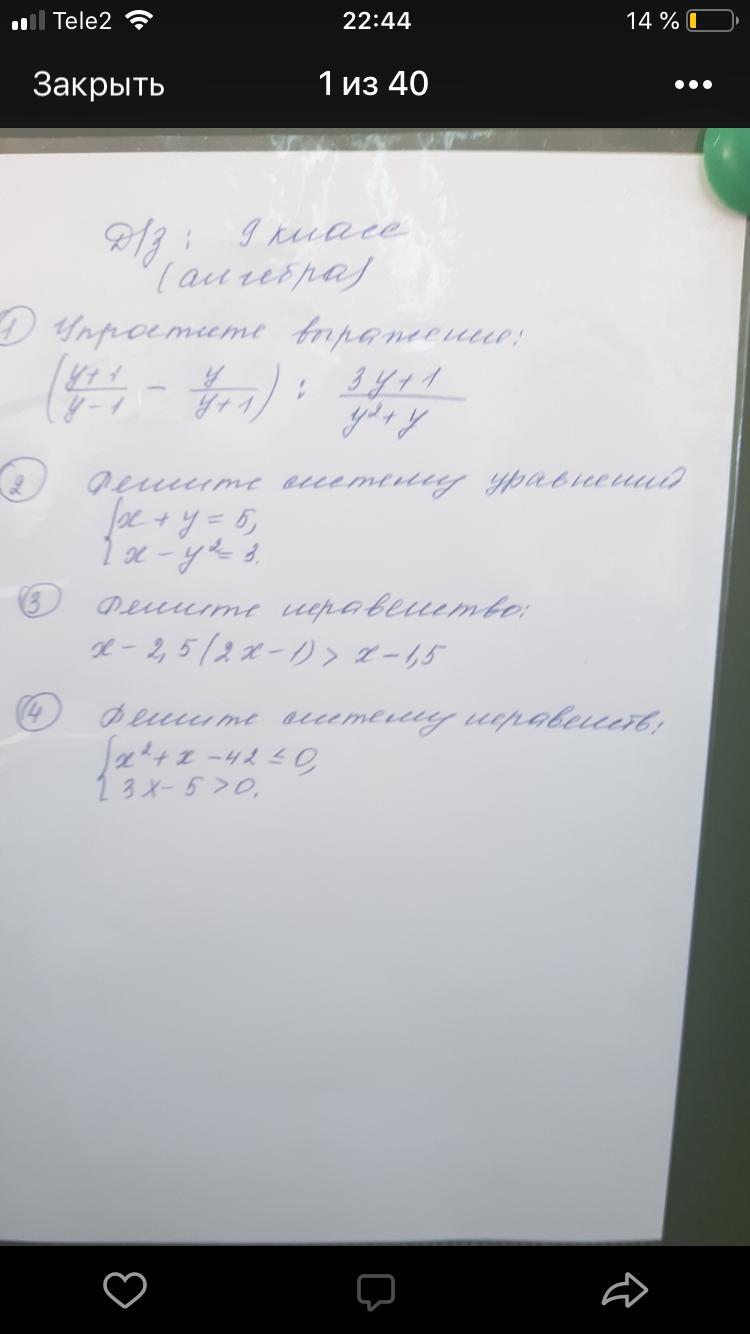 Tele2 22:44 14 %
Закрыть 1 из 40
Д/з: 9 класс
(алгебра)
1 Упростите выражение:
(y+1/y-1 - y/y+1) : 3y+1/y²+y
2 Решите систему уравнений
{x + y = 5,
x - y² = 3.
3 Решите неравенство:
x - 2,5(2x-1) > x-1,5
4 Решите систему неравенств:
{x² + x - 42 ≤ 0,
3x - 5 > 0.